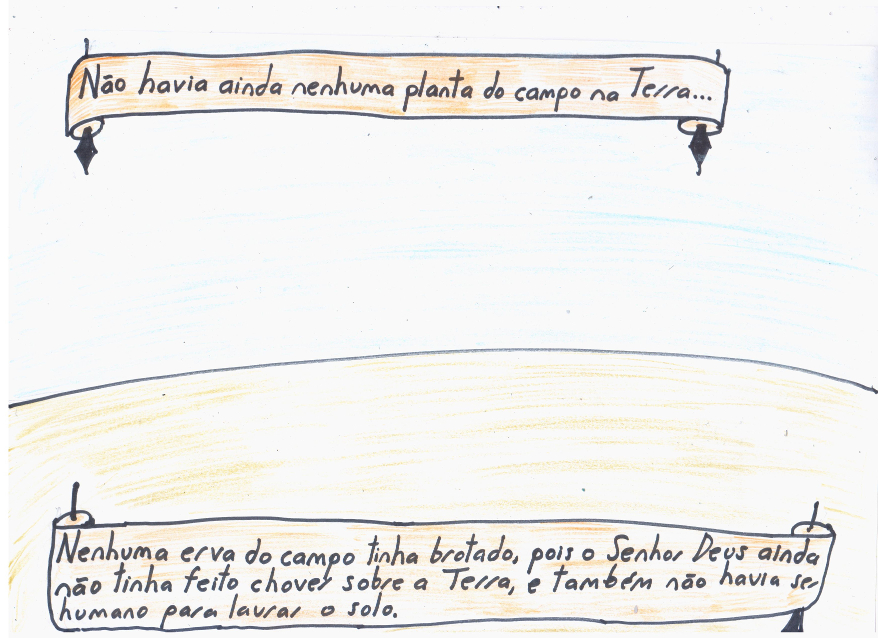 Não havia ainda nenhuma planta do campo na Terra...
Nenhuma erva do campo tinha brotado, pois o Senhor Deus ainda
não tinha feito chover sobre a Terra, e também não havia ser
humano para lavrar o solo.